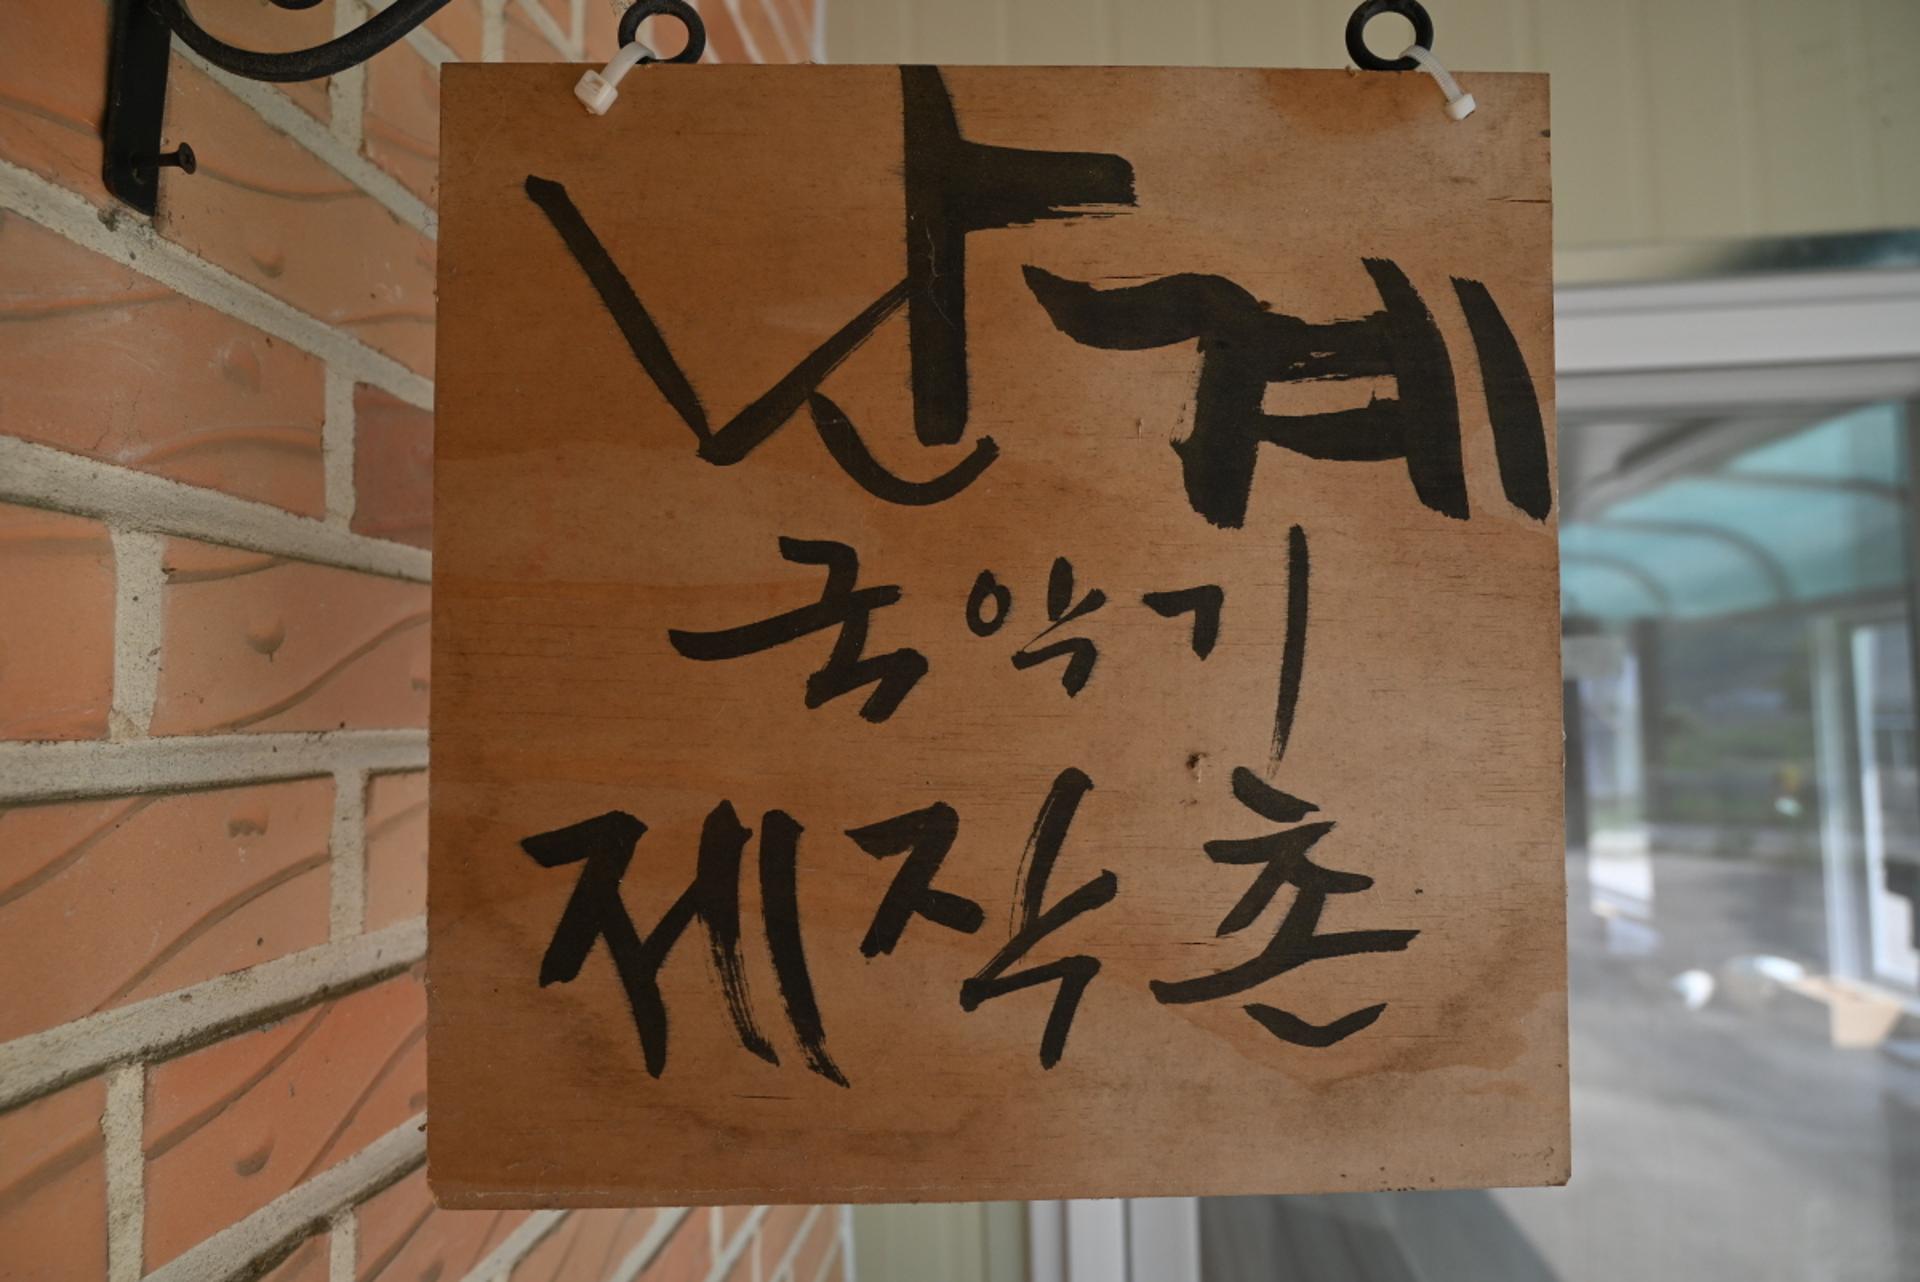 난계
국악기
제작촌